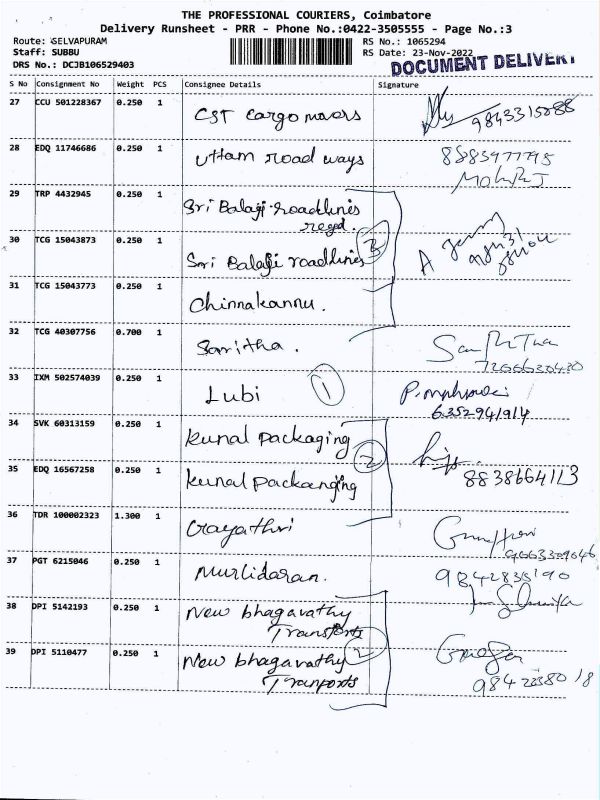 THE PROFESSIONAL COURIERS, Coimbatore
Delivery Runsheet - PRR - Phone No.:0422-3505555 - Page No.:3
Route: SELVAPURAM RS No.: 1065294
Staff: SUBBU RS Date: 23-Nov-2022
DRS No.: DCJB106529403 DOCUMENT DELIVERY
S No Consignment No Weight PCS Consignee Details Signature
27 CCU 501228367 0.250 1 CST cargo movers 9843315888
28 EDQ 11746686 0.250 1 Uttam road ways
29 TRP 4432945 0.250 1 Sri Balaji roadlines
regd.
3
30 TCG 15043873 0.250 1 Sri Balaji roadlines
31 TCG 15043773 0.250 1 Chinnakannu.
32 TCG 40307756 0.700 1 Saritha.
33 IXM 502574039 0.250 1 Lubi 1
6352941914
34 SVK 60313159 0.250 1 Kunal Packaging
2
35 EDQ 16567258 0.250 1 Kunal packanging 8838664113
36 TDR 100002323 1.300 1 Gayathri
37 PGT 6215046 0.250 1 Murlidaran.
38 DPI 5142193 0.250 1 New bhagavathy
Transports
2
39 DPI 5110477 0.250 1 New bhagavathy
Tranports